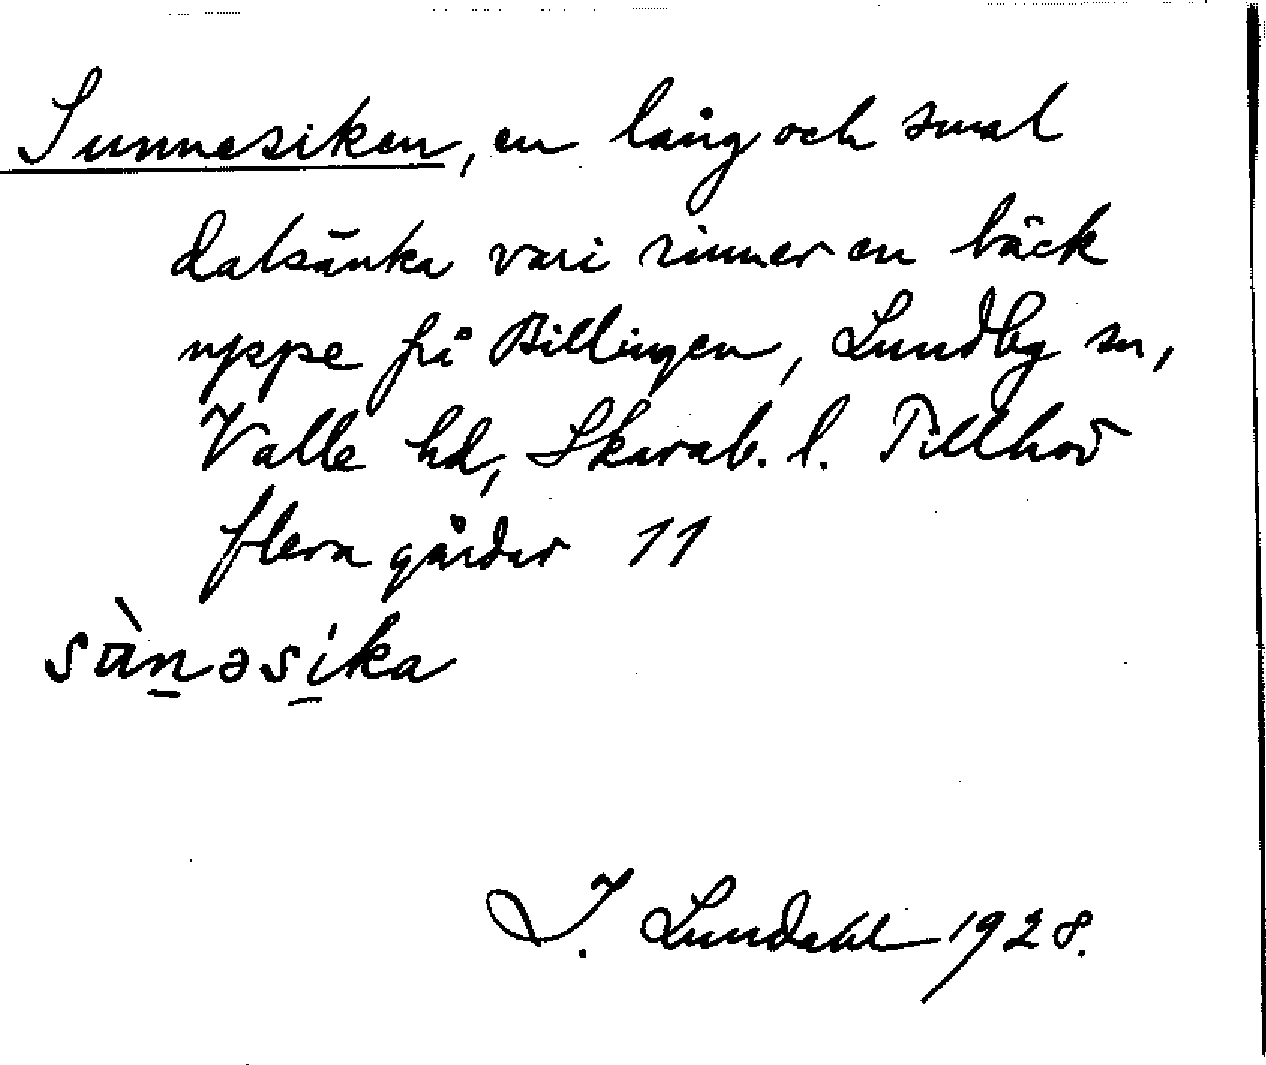 Sunnesiken, en lång och smal
dalsänka vari rinner en bäck
uppe på Billingen, Lundby sn,
Valle hd, Skarab. l. Tillhör
flera gårdar 11
sànəsika
I. Lundahl 1928.